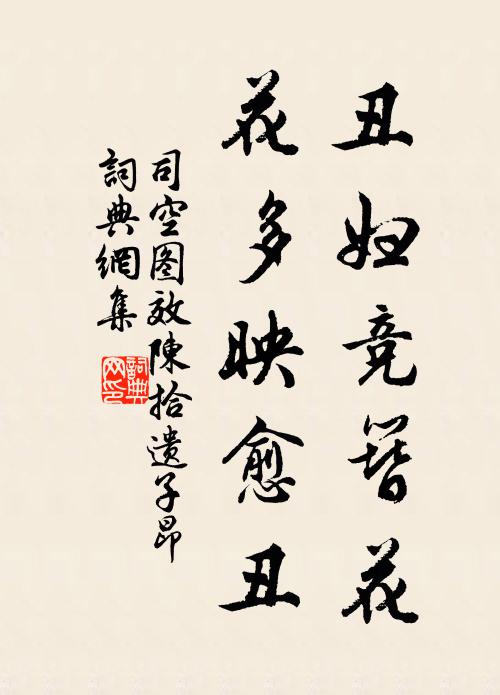 丑妇竞簪花
花多映愈丑
司空图效陳拾遺子昂
詞典網集
詞典网印